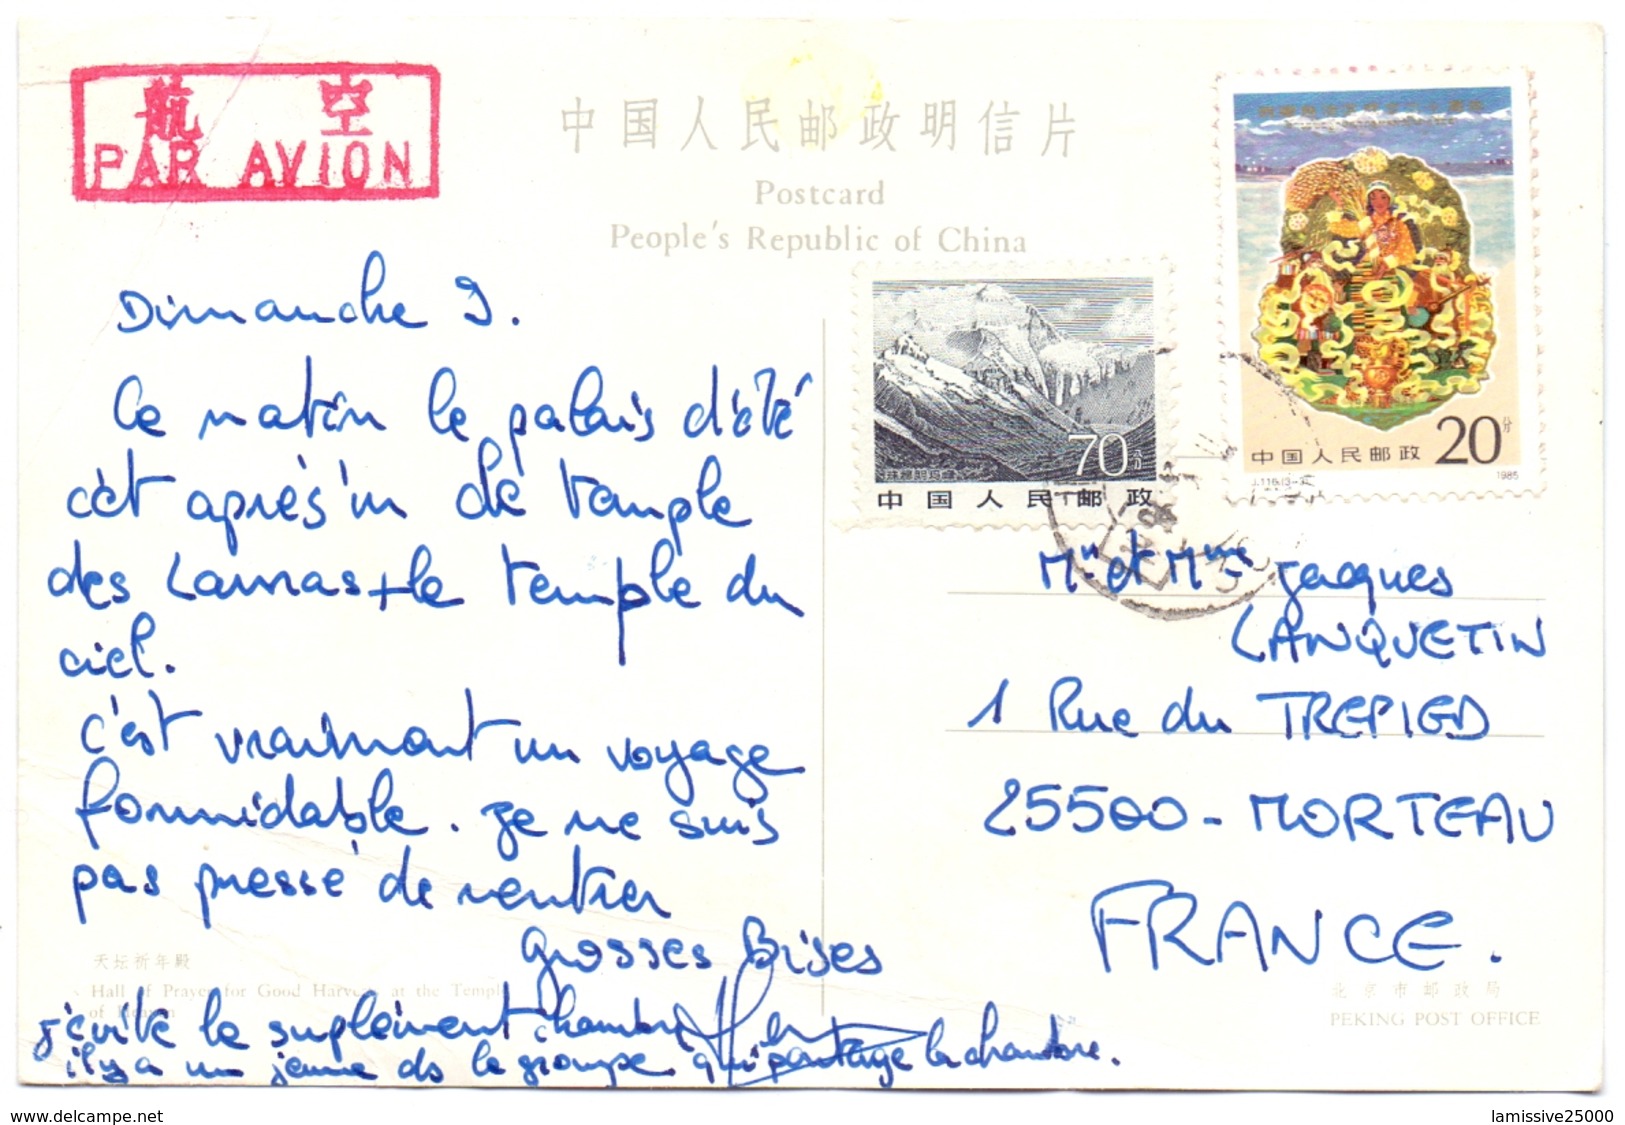 航 空
PAR AVION
中国人民邮政明信片
Postcard
People's Republic of China
Dimanche 9.
Ce matin le palais d'été
cèt après'm le temple
des Lamas + le temple du
ciel.
c'est vraiment un voyage
formidable. Je ne suis
pas pressé de rentrer
grosses Bises
j'évite le suplément chambre
il y a un jeune ds le groupe qui partage la chambre.
天坛祈年殿
Hall of Prayer for Good Harvest at the Temple
of Heaven
70分
珠穆朗玛峰
中国人民邮政
20分
中国人民邮政
J.116.(3-3)
1985
Mr et Mme Jacques
LANQUETIN
1 Rue du TREPIED
25500 - MORTEAU
FRANCE.
北京市邮政局
PEKING POST OFFICE
www.delcampe.net
lamissive25000